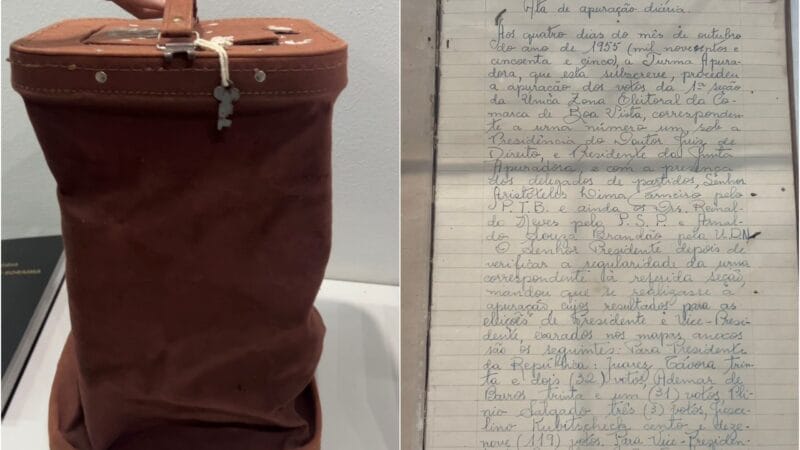 Ata de apuração diária.
Aos quatro dias do mês de outubro
do ano de 1955 (mil novecentos e
cincoenta e cinco), a Turma Apura-
dora, que esta subscreve, procedeu
a apuração dos votos da 1ª seção
da Única Zona Eleitoral da Co-
marca de Boa Vista, corresponden-
te a urna número um, sob a
Presidência do Doutor Juiz de
Direito, e Presidente da Junta
Apuradora, e com a presença
dos delegados de partidos, Senhor
Aristóteles Lima, pelo
P.T.B. e ainda os Srs. Reinal-
do Neves pela P.S.P. e Arnal-
do Souza Brandão pela U.D.N.
O Senhor Presidente depois de
verificar a regularidade da urna
correspondente à referida seção,
mandou que se realizasse a
apuração, cujos resultados para as
eleições de Presidente e Vice-Presi-
dente, exarados nos mapas anexos
são os seguintes: Para Presidente
da República: Juarez Távora trin-
ta e dois (32) votos, Ademar de
Barros trinta e um (31) votos, Plí-
nio Salgado três (3) votos, Jusce-
lino Kubitscheck cento e deze-
nove (119) votos. Para Vice-Presiden-